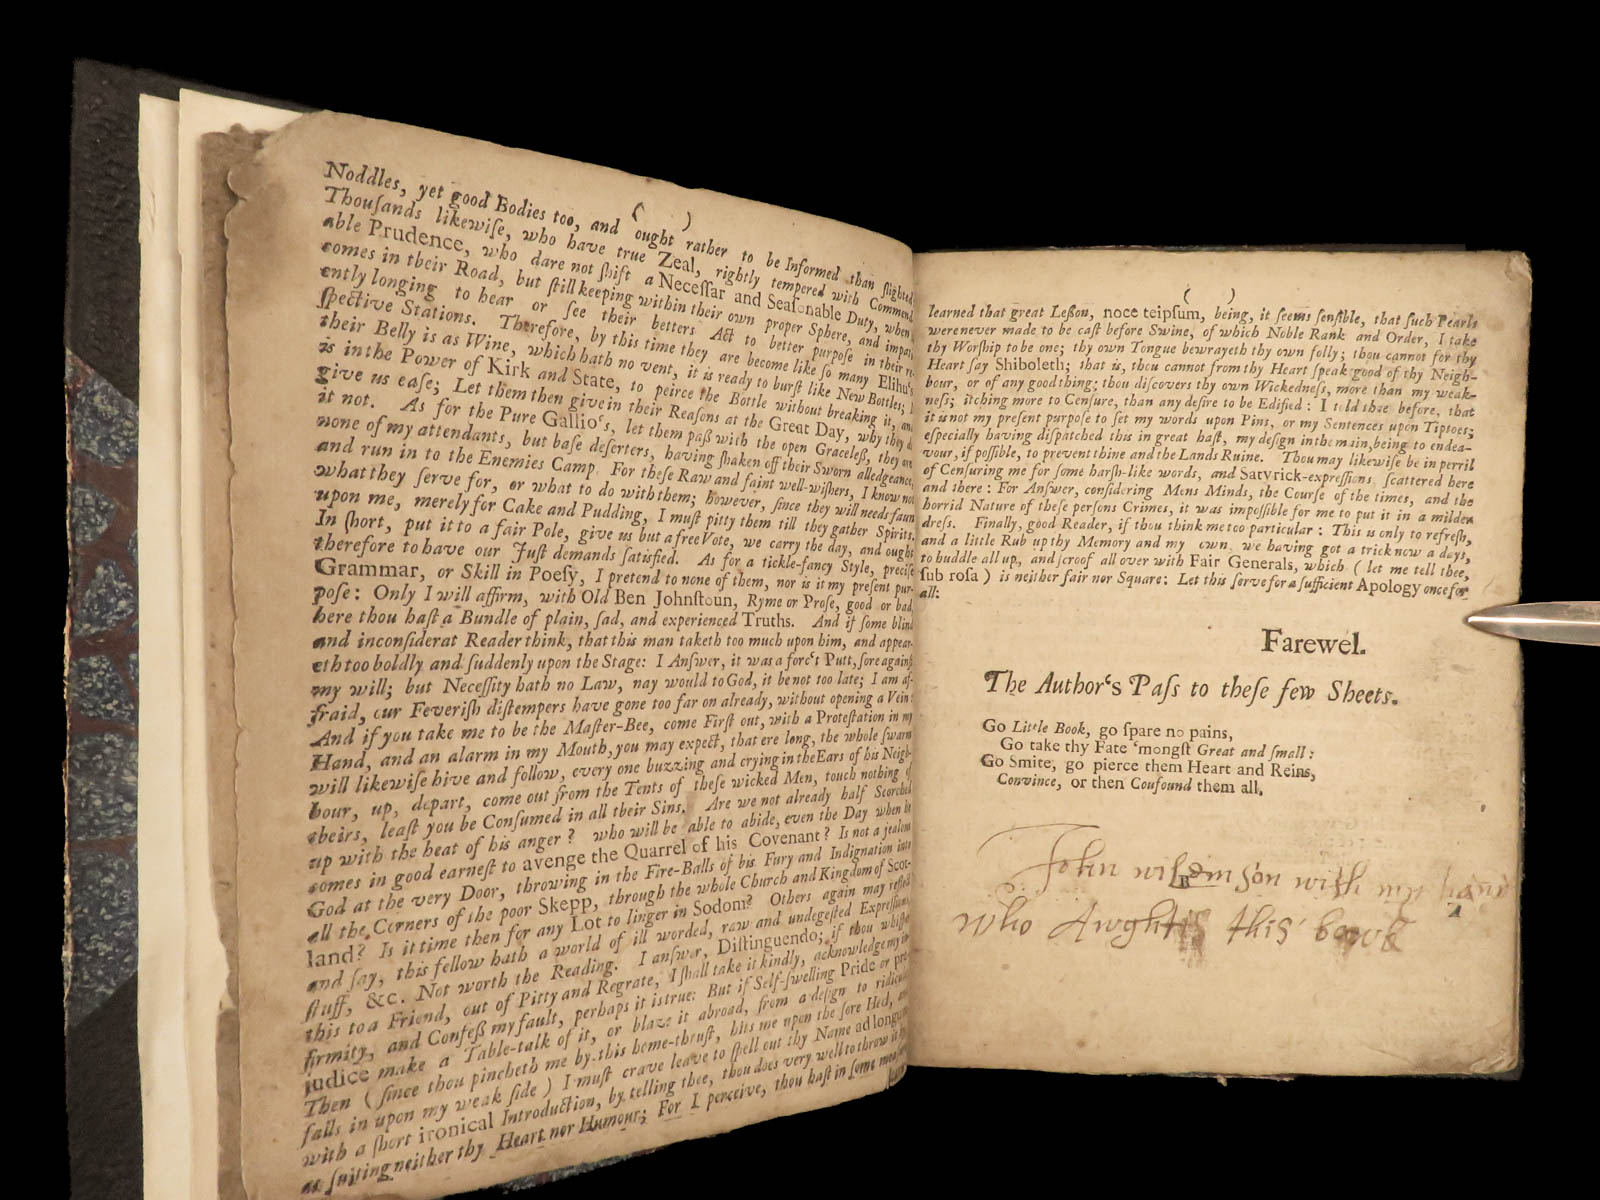 ( )
Noddles, yet good Bodies too, and ought rather to be Informed than ſlighted
Thouſands likewiſe, who have true Zeal, rightly tempered with Commend
able Prudence, who dare not ſhift a Neceſſar and Seaſonable Duty, when
comes in their Road, but ſtill keeping within their own proper Sphere, and impati
ently longing to hear or ſee their betters Act to better purpoſe in their re
ſpective Stations. Therefore, by this time they are become like ſo many Elihu's
their Belly is as Wine, which hath no vent, it is ready to burſt like New Bottles; I
is in the Power of Kirk and State, to peirce the Bottle without breaking it, and
give us eaſe; Let them then give in their Reaſons at the Great Day, why they d
it not. As for the Pure Gallio's, let them paß with the open Graceleß, they are
none of my attendants, but baſe deſerters, having ſhaken off their Sworn alledgeance,
and run in to the Enemies Camp. For theſe Raw and faint well-wiſhers, I know not
what they ſerve for, or what to do with them; however, since they will needs faun
upon me, merely for Cake and Pudding, I muſt pitty them till they gather Spirits.
In ſhort, put it to a fair Pole, give us but a free Vote, we carry the day, and ought
therefore to have our Juſt demands ſatisfied. As for a tickle-fancy Style, preciſe
Grammar, or Skill in Poeſy, I pretend to none of them, nor is it my preſent pur-
poſe: Only I will affirm, with Old Ben Johnſtoun, Ryme or Proſe, good or bad,
here thou haſt a Bundle of plain, ſad, and experienced Truths. And if ſome blind
and inconſiderat Reader think, that this man taketh too much upon him, and appear-
eth too boldly and ſuddenly upon the Stage: I Anſwer, it was a forc't Putt, ſore againſt
my will; but Neceſſity hath no Law, nay would to God, it be not too late; I am af-
fraid, our Feveriſh diſtempers have gone too far on already, without opening a Vein:
And if you take me to be the Maſter-Bee, come Firſt out, with a Proteſtation in my
Hand, and an alarm in my Mouth, you may expect, that ere long, the whole ſwarm
will likewiſe hive and follow, every one buzzing and crying in the Ears of his Neigh-
bour, up, depart, come out from the Tents of theſe wicked Men, touch nothing of
theirs, leaſt you be Conſumed in all their Sins. Are we not already half Scorched
up with the heat of his anger? who will be able to abide, even the Day when he
comes in good earneſt to avenge the Quarrel of his Covenant? Is not a jealous
God at the very Door, throwing in the Fire-Balls of his Fury and Indignation into
all the Corners of the poor Skepp, through the whole Church and Kingdom of Scot-
land? Is it time then for any Lot to linger in Sodom? Others again may reflect
and ſay, this fellow hath a world of ill worded, raw and undegeſted Expreſſions,
ſtuff, &c. Not worth the Reading. I anſwer, Diſtinguendo; if thou whiſper
this to a Friend, out of Pitty and Regrate, I ſhall take it kindly, acknowledge my in
firmity, and Confeß my fault, perhaps it is true: But if Self-ſwelling Pride or pre
judice make a Table-talk of it, or blaze it abroad, from a deſign to ridicule
Then (ſince thou pincheth me by this home-thruſt, hits me upon the ſore Heel, and
falls in upon my weak ſide) I muſt crave leave to ſpell out thy Name ad longum
with a ſhort ironical Introduction, by telling thee, thou does very well to throw it by
as ſuiting neither thy Heart nor Humour; For I perceive, thou haſt in ſome meaſure
learn
( )
learned that great Leßon, noce teipſum, being, it ſeems ſenſible, that ſuch Pearls
were never made to be caſt before Swine, of which Noble Rank and Order, I take
thy Worſhip to be one; thy own Tongue bewrayeth thy own folly; thou cannot for thy
Heart ſay Shiboleth; that is, thou cannot from thy Heart ſpeak good of thy Neigh-
bour, or of any good thing; thou diſcovers thy own Wickedneſs, more than my weak-
neſs; itching more to Cenſure, than any deſire to be Edified: I told thee before, that
it is not my preſent purpoſe to ſet my words upon Pins, or my Sentences upon Tiptoes;
eſpecially having diſpatched this in great haſt, my deſign in the main, being to endea-
vour, if poſſible, to prevent thine and the Lands Ruine. Thou may likewiſe be in perril
of Cenſuring me for ſome harſh-like words, and Satyrick-expreſſions, ſcattered here
and there: For Anſwer, conſidering Mens Minds, the Courſe of the times, and the
horrid Nature of theſe perſons Crimes, it was impoſſible for me to put it in a milder
dreſs. Finally, good Reader, if thou think me too particular: This is only to refreſh,
and a little Rub up thy Memory and my own, we having got a trick now a days,
to huddle all up, and ſcroof all over with Fair Generals, which (let me tell thee,
ſub roſa) is neither fair nor Square: Let this ſerve for a ſufficient Apology once for
all:
Farewel.
The Author's Paſs to theſe few Sheets.
Go Little Book, go ſpare no pains,
Go take thy Fate 'mongſt Great and ſmall:
Go Smite, go pierce them Heart and Reins,
Convince, or then Coufound them all.
John with my hand
who this